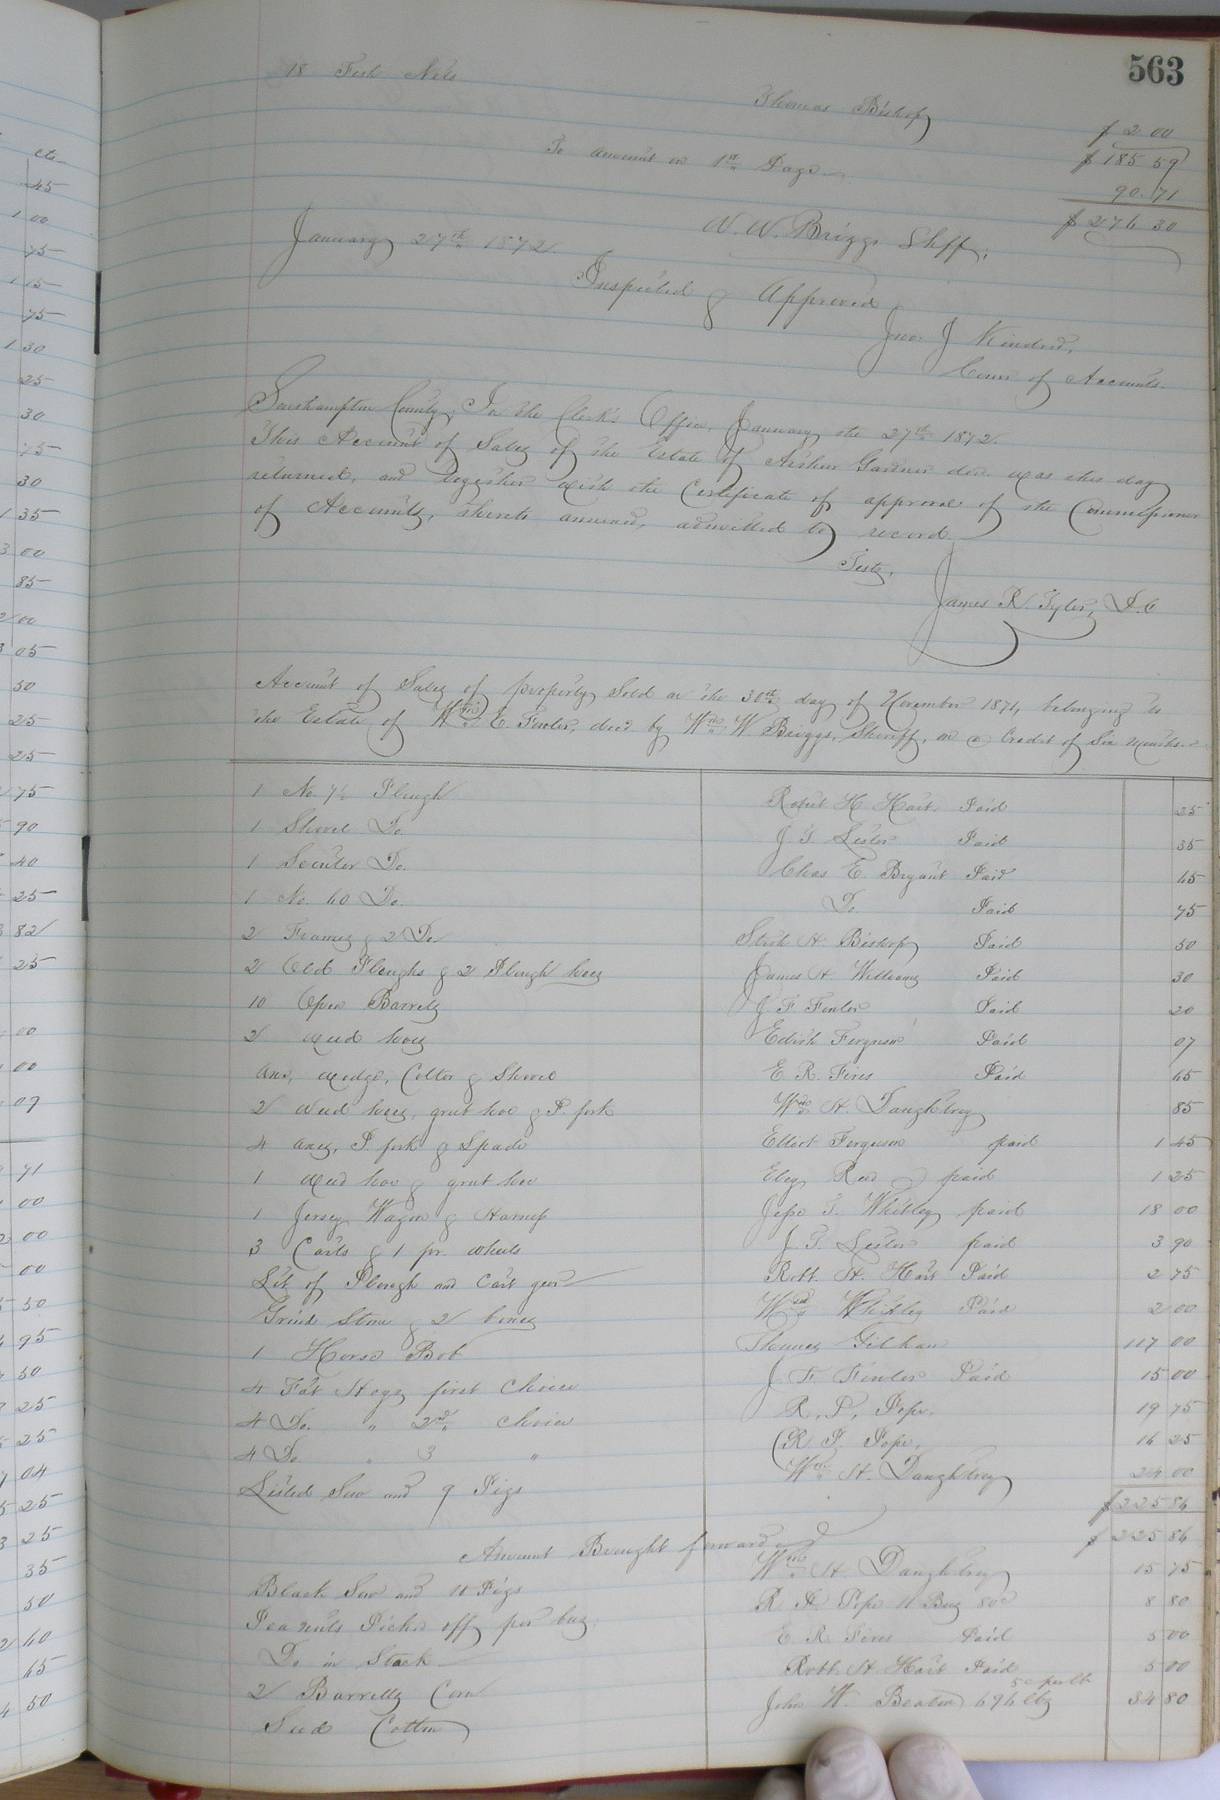 563
18 Fish Nets Thomas Bishop $ 2 00
$ 185 59
To amount on 1st Page 90.71
$ 276 30
W. W. Briggs Shff,
January 27th 1872.
Inspected & Approved
Jno. J Kindred,
Comr of Accounts.
Southampton County, In the Clerk's Office, January the 27th 1872.
This Account of Sales of the Estate of Arthur Gardner decd. was this day
returned, and together with the Certificate of approval of the Commissioner
of Accounts, thereto annexed, admitted to record.
Teste,
James R. Tyler, D.C
Account of Sales of property Sold on the 30th day of November 1871, belonging to
the Estate of Wm E. Fowler, decd by Wm W Briggs, Sheriff, on a Credit of Six Months.
1 No. 7½ Plough Robert H Hart. Paid 25
1 Shovel Do. J. T Lester Paid 35
1 Do. Chas E. Bryant Paid 45
1 No. 40 Do. Do. Paid 75
2 Frames & 2 Do H. Bishop Paid 50
2 Old Ploughs & 2 Plough hoes James H. Williams Paid 30
10 Open Barrels J F Fowler Paid 20
2 weed hoes Ferguson Paid 07
Axe, wedge, Colter & Shovel E. R. Paid 65
2 weed hoes, grub hoe & P. fork Wm H. Daughtrey 85
4 axes, P. fork & Spade Elliott Ferguson paid 1 45
1 weed hoe & grub hoe paid 1 25
1 Jersey Wagon & Harness Jesse T. Whitley paid 18 00
3 Carts & 1 pr. wheels J. T. Lester paid 3 90
Lot of Plough and Cart gear Robt. H. Hart Paid 2 75
Grind Stone & 2 Whitley Paid 2 00
1 Horse Bob Thomas 117 00
4 Fat Hogs first Choice J. F. Fowler Paid 15 00
4 Do. " 2nd Choice R. P. Pope. 19 75
4 Do " 3 " R. P. Pope. 16 25
Listed Sow and 9 Pigs Wm H. Daughtrey 24 00
$ 225 86
Amount Brought forward $ 225 86
Black Sow and 11 Pigs Wm H Daughtrey 15 75
Pea nuts Picked off per bag. Pope 11 Bag 80c 8 80
Do in Stack E. R. Paid 5 00
2 Barrells Corn Robt. H Hart Paid 5 00
Seed Cotton John W. Beaton 696 lbs 5c per lb 34 80
ets
45
1 00
75
1 15
75
1 30
25
30
75
30
1 35
3 00
85
2 00
05
50
25
25
75
90
40
25
82
25
00
00
09
71
00
00
00
50
95
50
25
25
04
25
25
35
50
40
45
50